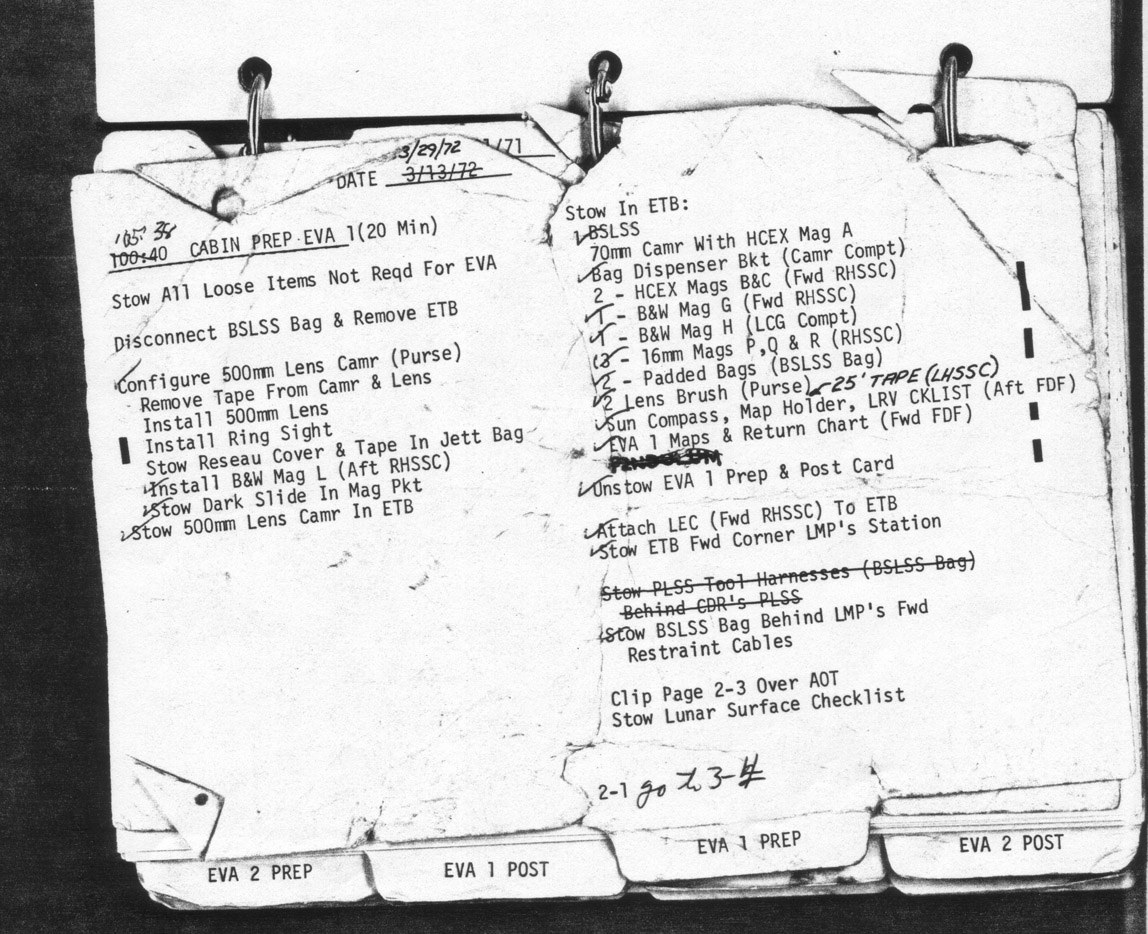 3/29/72 1/71
DATE 3/13/72
105:38
100:40 CABIN PREP EVA 1(20 Min)
Stow All Loose Items Not Reqd For EVA
Disconnect BSLSS Bag & Remove ETB
Configure 500mm Lens Camr (Purse)
Remove Tape From Camr & Lens
Install 500mm Lens
Install Ring Sight
Stow Reseau Cover & Tape In Jett Bag
Install B&W Mag L (Aft RHSSC)
Stow Dark Slide In Mag Pkt
Stow 500mm Lens Camr In ETB
Stow In ETB:
BSLSS
70mm Camr With HCEX Mag A
Bag Dispenser Bkt (Camr Compt)
2 - HCEX Mags B&C (Fwd RHSSC)
1 - B&W Mag G (Fwd RHSSC)
1 - B&W Mag H (LCG Compt)
(3 - 16mm Mags P,Q & R (RHSSC)
2 - Padded Bags (BSLSS Bag)
2 Lens Brush (Purse) 25' TAPE (LHSSC)
Sun Compass, Map Holder, LRV CKLIST (Aft FDF)
EVA 1 Maps & Return Chart (Fwd FDF)
Unstow EVA 1 Prep & Post Card
Attach LEC (Fwd RHSSC) To ETB
Stow ETB Fwd Corner LMP's Station
Stow PLSS Tool Harnesses (BSLSS Bag)
Behind CDR's PLSS
Stow BSLSS Bag Behind LMP's Fwd
Restraint Cables
Clip Page 2-3 Over AOT
Stow Lunar Surface Checklist
2-1 go to 3-4
EVA 2 PREP
EVA 1 POST
EVA 1 PREP
EVA 2 POST